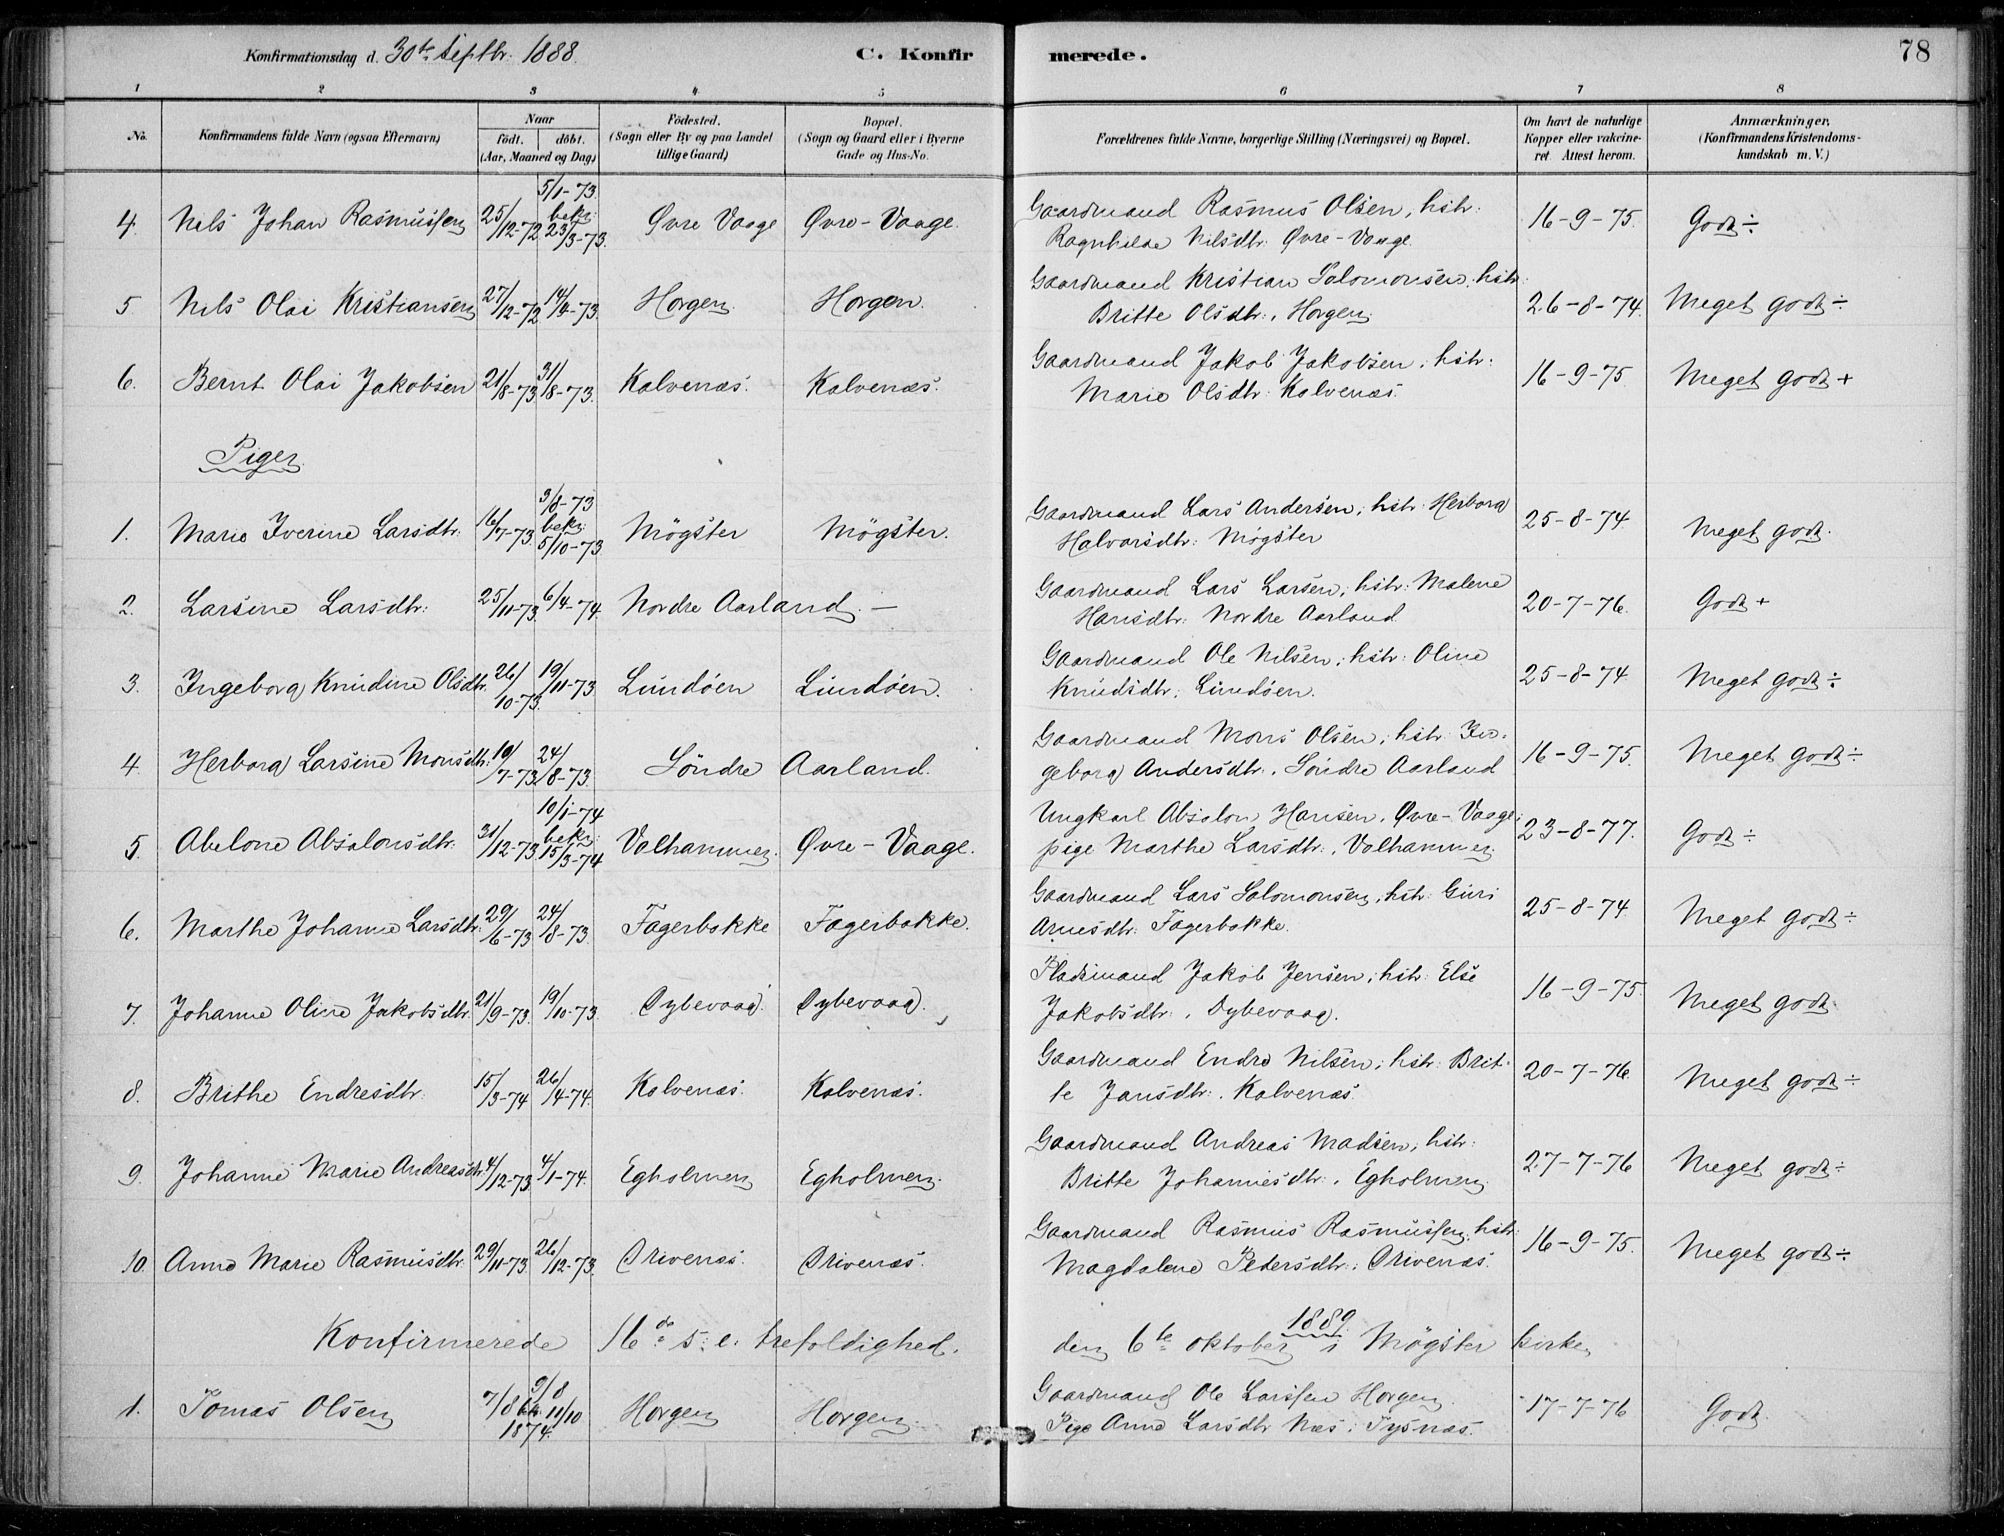 Konfirmationsdag d. 30te Septbr. 1888. C. Konfirmerede. 78
1 2 3 4 5 6 7 8
No. Konfirmandens fulde Navn (ogsaa Efternavn) Naar født. døbt. (Aar, Maaned og Dag) Fødested. (Sogn eller By og paa Landet tillige Gaard) Bopæl. (Sogn og Gaard eller i Byerne Gade og Hus-No. Forældrenes fulde Navne, borgerlige Stilling (Næringsvei) og Bopæl. Om havt de naturlige Kopper eller vakcineret. Attest herom. Anmærkninger. (Konfirmandens Kristendomskundskab m. V.)
4. Nils Johan Rasmussen 25/12-72 5/1-73 bekr: 23/3-73. Øvre Vaage Øvre-Vaage. Gaardmand Rasmus Olsen, hstr: Ragnhilde Nilsdtr: Øvre-Vaage. 16-9-75. Godt ÷
5 Nils Olai Kristiansen 27/12-72 14/4-73. Horgen. Horgen. Gaardmand Kristian Salomonsen, hstr: Britte Olsdtr:, Horgen. 26-8-74. Meget godt ÷
6. Bernt Olai Jakobsen 21/8-73 31/8-73. Kalvenæs. Kalvenæs. Gaardmand Jakob Jakobsen, hstr: Marie Olsdtr: Kalvenæs. 16-9-75. Meget godt +
Piger
1. Marie Iverine Larsdtr: 16/7-73. 3/8-73 bekr: 5/10-73 Møgster Møgster. Gaardmand Lars Andersen, hstr: Herborg Halvorsdtr: Møgster 25-8-74. Meget godt.
2. Larsine Larsdtr: 25/11-73. 6/4-74. Nordre Aarland. — Gaardmand Lars Larsen, hstr: Malene Hansdtr: Nordre Aarland 20-7-76. Godt +
3. Ingeborg Knudine Olsdtr. 26/10-73. 19/11-73. Lundøen Lundøen. Gaardmand Ole Nilsen, hstr: Oline Knudsdtr: Lundøen. 25-8-74. Meget godt ÷
4. Herborg Larsine Monsdtr: 19/7-73. 24/8-73. Søndre Aarland. Gaardmand Mons Olsen, hstr: Ingeborg Andersdtr:, Søndre Aarland 16-9-75. Meget godt ÷
5. Abelone Absalonsdtr: 31/12-73. 10/1-74 bekr: 15/3-74 Valhammer. Øvre-Vaage. Ungkarl Absalon Hansen, Øvre-Vaage, pige Marthe Larsdtr:, Valhammer. 23-8-77. Godt ÷
6. Marthe Johanne Larsdtr: 29/6-73 24/8-73. Fagerbakke Fagerbakke. Gaardmand Lars Salomonsen, hstr: Guri Arnesdtr: Fagerbakke. 25-8-74. Meget godt ÷
7. Johanne Oline Jakobsdtr. 21/9-73. 19/10-73. Dybevaag. Dybevaag. Pladsmand Jakob Jensen, hstr: Else Jakobsdtr:, Dybevaag. 16-9-75. Meget godt
8 Brithe Endresdtr: 15/3-74 26/4-74. Kalvenæs. Kalvenæs. Gaardmand Endre Nilsen, hstr: Britte Jansdtr:, Kalvenæs. 20-7-76. Meget godt ÷
9. Johanne Marie Andreasdtr. 4/12-73 4/1-74. Egholmen Egholmen. Gaardmand Andreas Madsen, hstr: Britte Johannesdtr:, Egholmen. 27-7-76 Meget godt ÷
10. Anne Marie Rasmusdtr. 29/11-73. 26/12-73. Drivenæs. Drivenæs. Gaardmand Rasmus Rasmussen, hstr: Magdalene Pedersdtr:, Drivenæs. 16-9-75. Meget godt ÷
Konfirmerede 16de s. e. trefoldighed. den 6te oktober 1889 i Møgster kirke
1. Tomas Olsen 7/8 9/8 11/10 1874. Horgen Horgen. Gaardmand Ole Larssen Horgen. Pige Anna Larsdtr Næs, Tysnæs. 17-7-76 Godt.